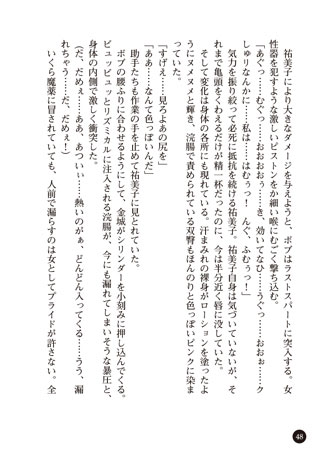 祐美子により大きなダメージを与えようと、ボブはラストスパートに突入する。女
性器を犯すような激しいピストンをか細い喉にむごく撃ち込む。
「あぐっ……むぐっ……おおおぉぅ……き、効いてなひ……うぐっ……おおぉ……ク
しゅリなんかに……私は……むほぉっ！　んぐ、ふむぅっ！」
　気力を振り絞って必死に抵抗を続ける祐美子。祐美子自身は気づいていないが、そ
れまで亀頭をくわえるだけが精一杯だったのに、今は半分近く唇に没していた。
　そして変化は身体の各所にも現れている。汗まみれの裸身がローションを塗ったよ
うにヌメヌメと輝き、浣腸で責められている双臀もほんのりと色っぽいピンクに染ま
っていた。
「すげえ……見ろよあの尻を」
「ああ……なんて色っぽいんだ」
　助手たちも作業の手を止めて祐美子に見とれていた。
　ボブの腰ふりに合わせるようにして、金城がシリンダーを小刻みに押し込んでくる。
ビュッビュッとリズミカルに注入される浣腸が、今にも漏れてしまいそうな暴圧と、
身体の内側で激しく衝突した。
（だ、だめぇ……ああ、あついぃ……熱いのがぁ、どんどん入ってくる……うう、漏
れちゃう……だ、だめぇ！）
　いくら魔薬に冒されていても、人前で漏らすのは女としてプライドが許さない。全
48